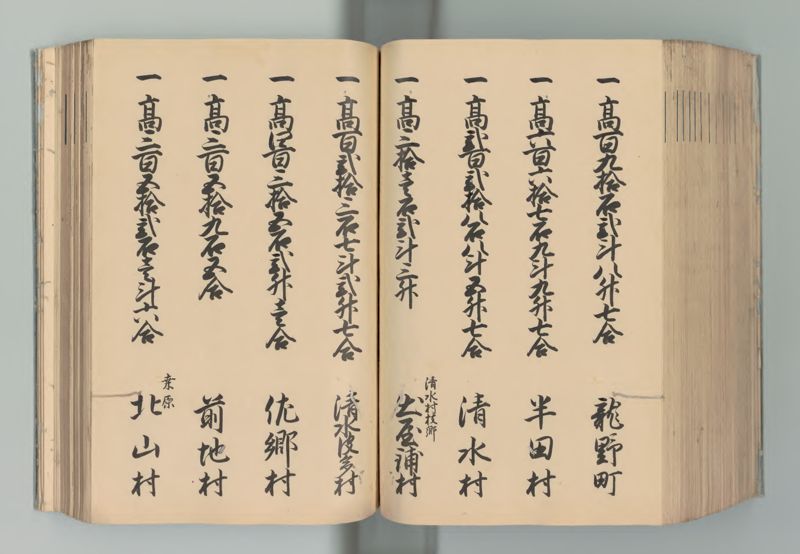 一 高百九拾石弐斗八升七合 龍野町
一 高六百六拾七石九斗九升七合 半田村
一 高弐百弐拾八石八斗五升七合 清水村
一 高三拾壱石弐斗三升 清水村枝郷 村
一 高百弐拾三石七斗弐升七合 清水 村
一 高四百三拾五石弐升壱合 佐郷村
一 高三百五拾九石五合 前地村
一 高三百五拾弐石壱斗六合 桒原 北山村